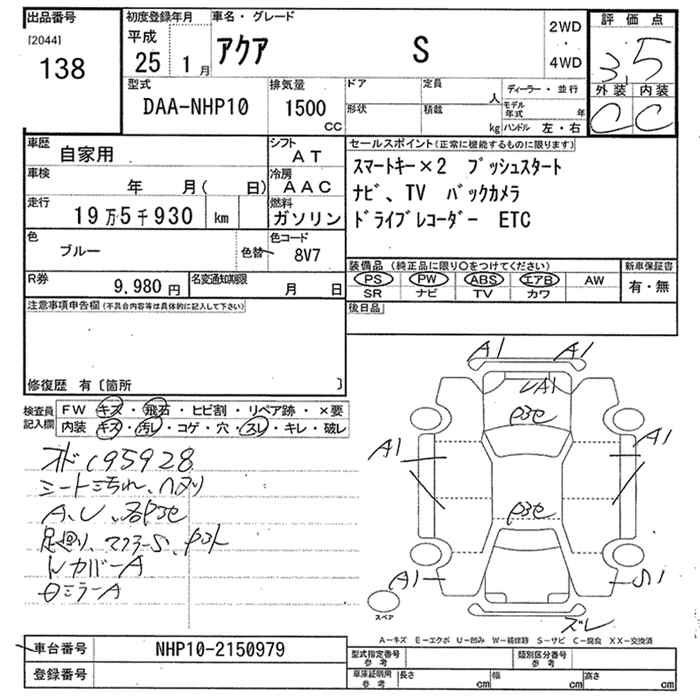 出品番号
[2044]
138
初度登録年月
平成
25 1月
車名・グレード
アクア S
2WD
・
4WD
評価点
3.5
外装 内装
C C
型式
DAA-NHP10
排気量
1500
CC
ドア
定員
人
形状
積載
kg
ディーラー・並行
モデル年式
年
ハンドル 左・右
車歴
自家用
シフト
AT
車検
年 月( 日)
冷房
AAC
走行
19万5千930 km
燃料
ガソリン
色
ブルー
色替
色コード
8V7
R券
9,980円
名変通知期限
月 日
セールスポイント(正常に機能するものに限ります)
スマートキー×2 プッシュスタート
ナビ、TV バックカメラ
ドライブレコーダー ETC
装備品(純正品に限り○をつけてください)
PS PW ABS エアB AW
SR ナビ TV カワ
新車保証書
有・無
後日品
注意事項申告欄(不具合内容等は具体的に記入して下さい)
修復歴 有〔箇所 〕
検査員記入欄
FW キズ・飛石・ヒビ割・リペア跡・×要
内装 キズ・汚レ・コゲ・穴・スレ・キレ・破レ
オド195928
シート汚れ、ヘタリ
A、U、各P3e
足廻り、マフラーS、
カバーA
ミラーA
A1 A1
A1
P3e
A1 A1
P3e
A1 S1
ズレ
スペア
A－キズ E－エクボ U－凹み W－補修跡 S－サビ C－腐食 XX－交換済
車台番号 NHP10-2150979
登録番号
型式指定番号
参考
類別区分番号
参考
車庫証明用
参考
長さ cm 幅 cm 高さ cm